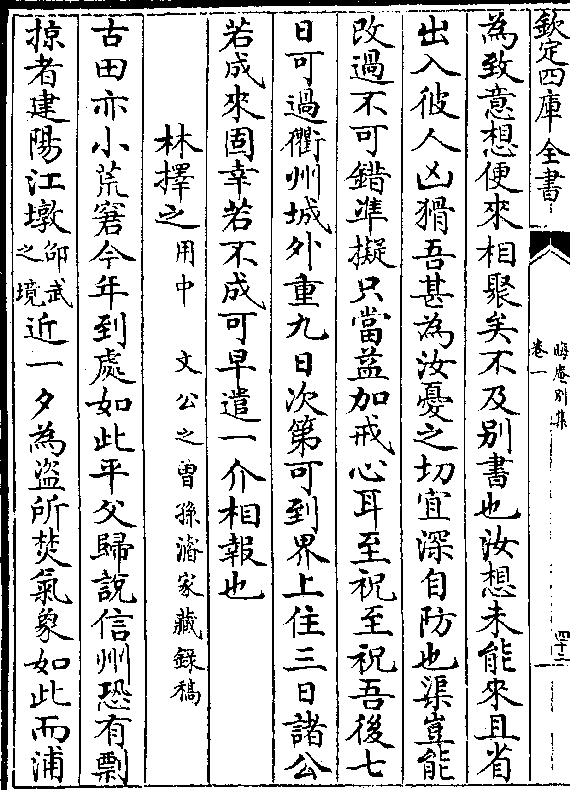 欽定四庫全書
晦庵別集
卷一
四十三
為致意想便來相聚矣不及別書也汝想未能來且省
出入彼人凶猾吾甚為汝憂之切宜深自防也渠豈能
改過不可錯準擬只當益加戒心耳至祝至祝吾後七
日可過衢州城外重九日次第可到界上住三日諸公
若成來固幸若不成可早遣一介相報也
林擇之用中　文公之曾孫濬家藏錄稿
古田亦小荒窘今年到處如此平父歸說信州恐有剽
掠者建陽江墩邵武之境近一夕為盜所焚氣象如此而浦